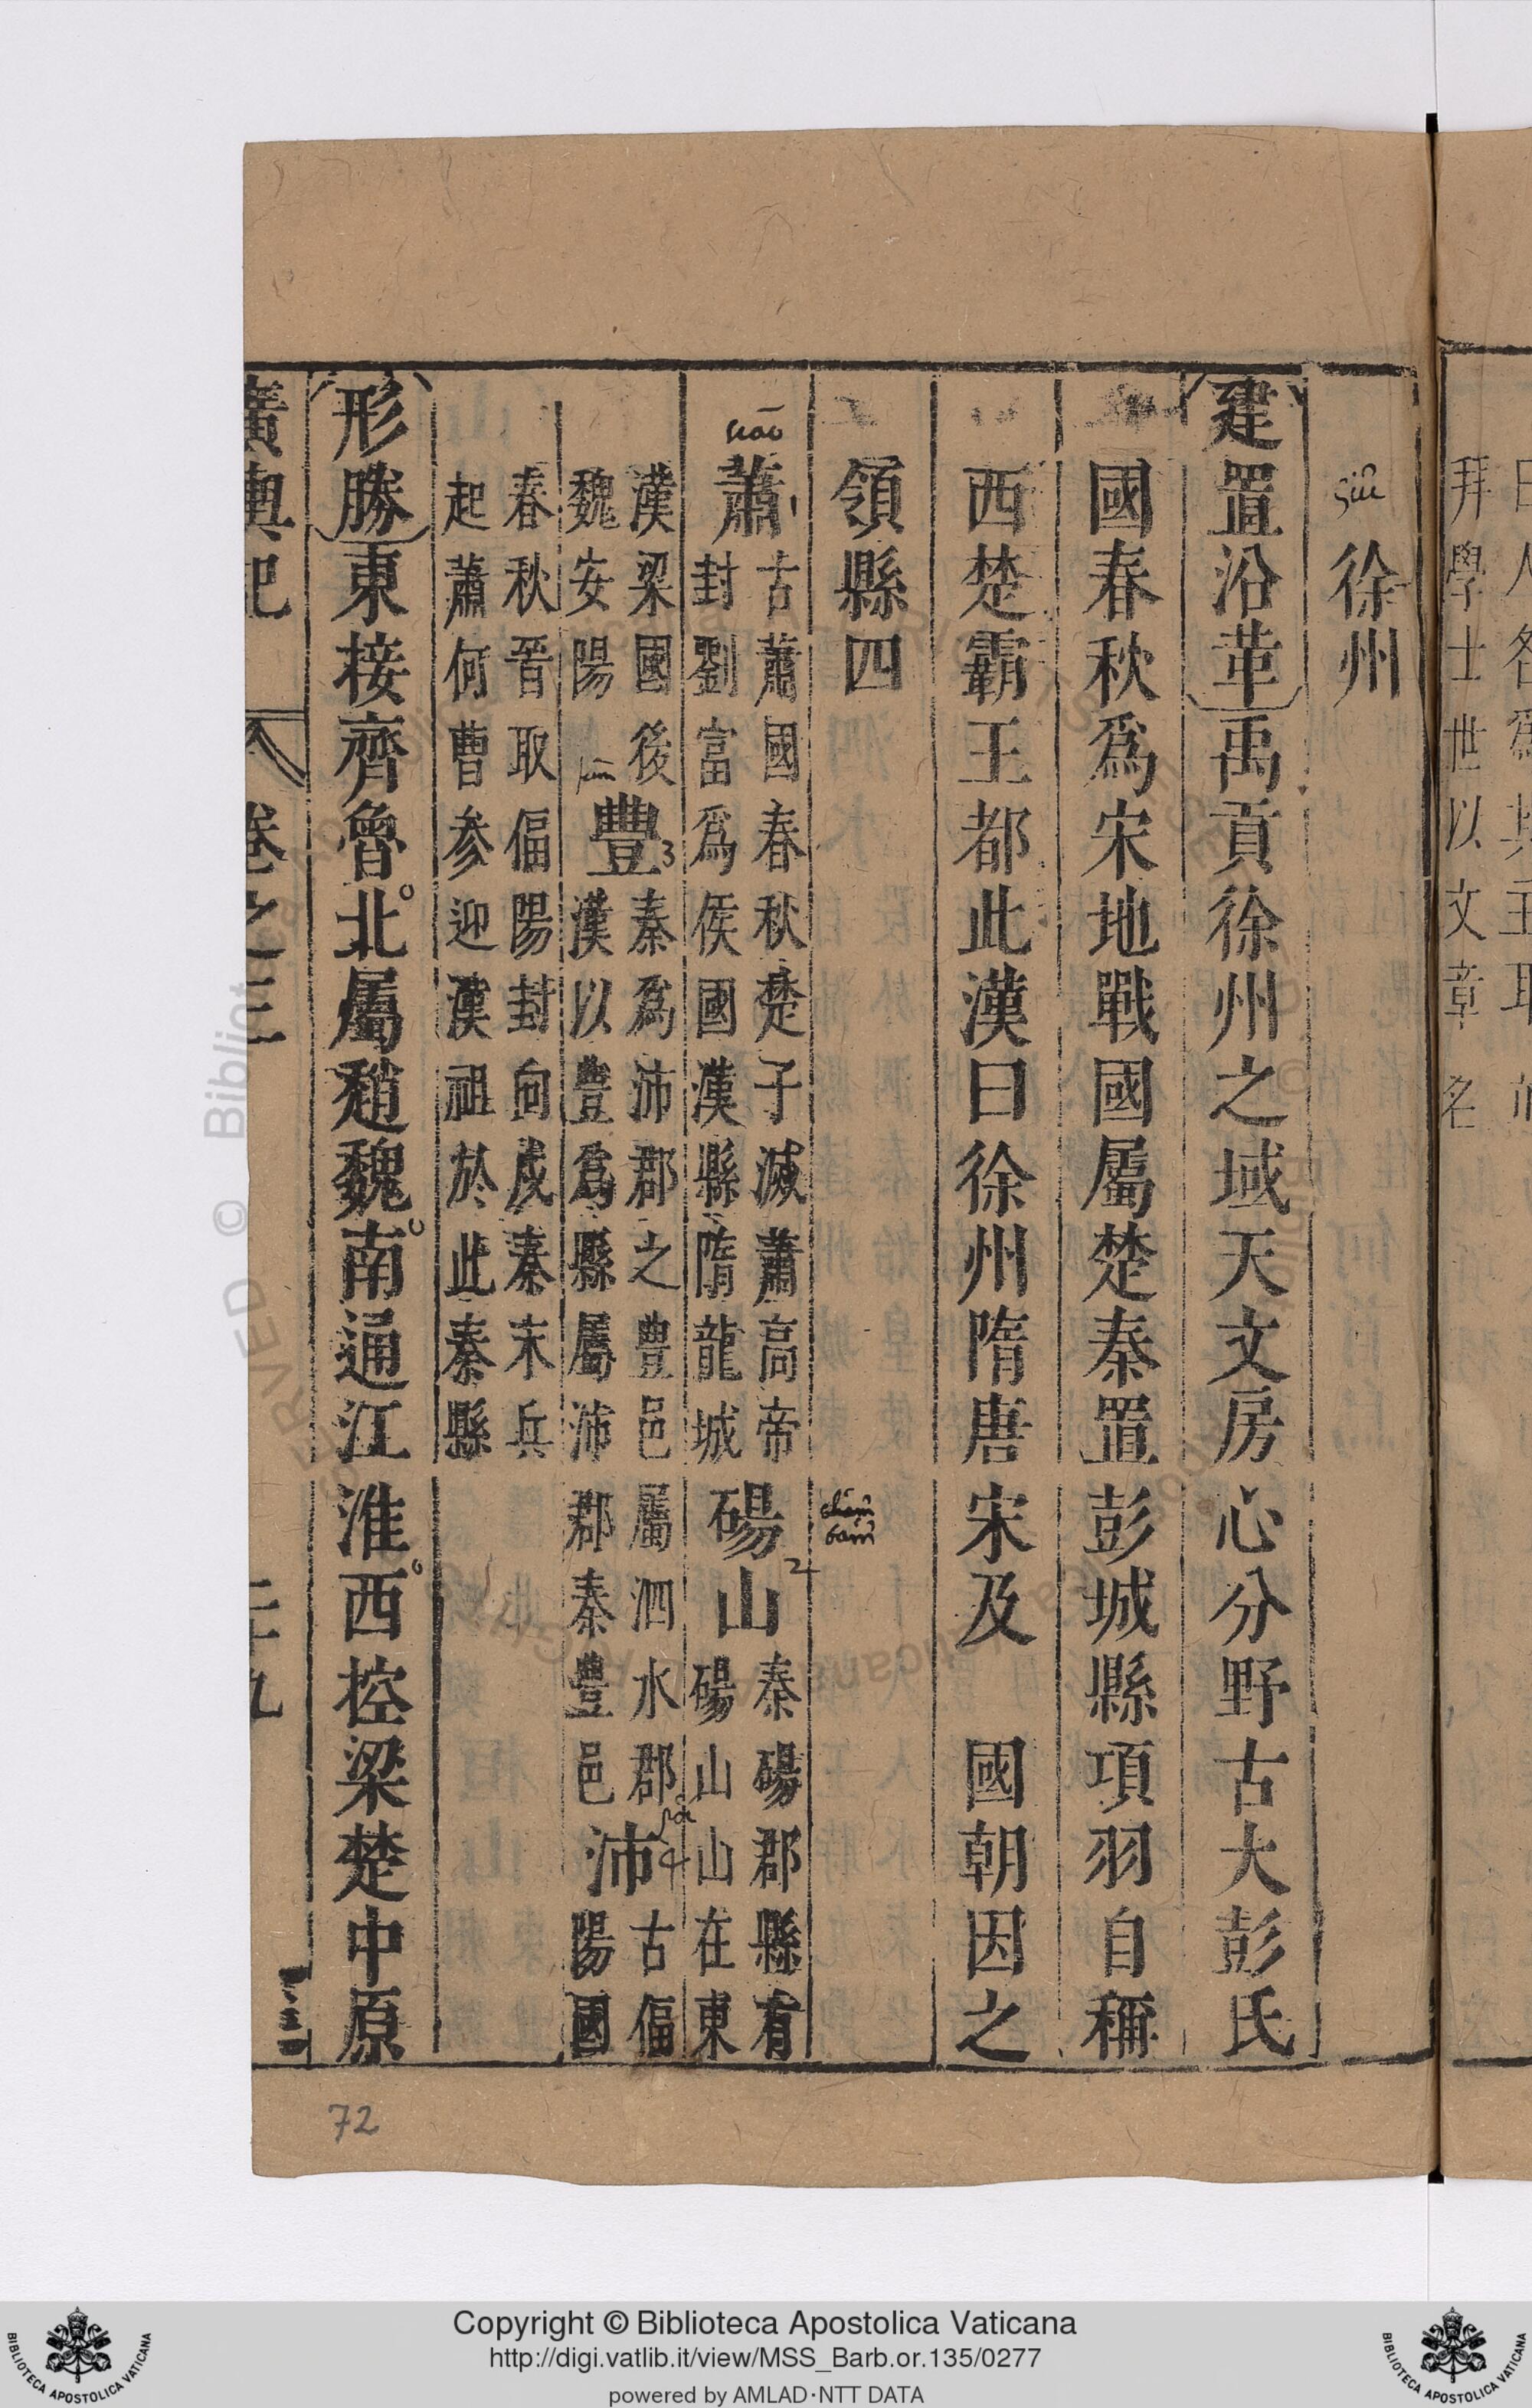 徐州
siû
建置沿革禹貢徐州之域天文房心分野古大彭氏
國春秋爲宋地戰國屬楚秦置彭城縣項羽自稱
西楚霸王都此漢曰徐州隋唐宋及 國朝因之
領縣四
siāo
蕭 1
古蕭國春秋楚子滅蕭高帝
封劉富爲侯國漢縣隋龍城
碭山 2
秦碭郡縣有
碭山山在東
漢梁國後
魏安陽
豐 3
秦爲沛郡之豐邑
漢以豐爲縣屬沛
屬泗水郡
郡秦豐邑
沛 4
古偪
陽國
春秋晉取偪陽封向戌秦末兵
起蕭何曹参迎漢祖於此秦縣
形勝東接齊魯北屬趙魏南通江淮西控梁楚中原
廣輿記 卷之三 二十九
72
Copyright © Biblioteca Apostolica Vaticana
http://digi.vatlib.it/view/MSS_Barb.or.135/0277
powered by AMLAD·NTT DATA
BIBLIOTECA APOSTOLICA VATICANA
BIBLIOTECA APOSTOLICA VATICANA